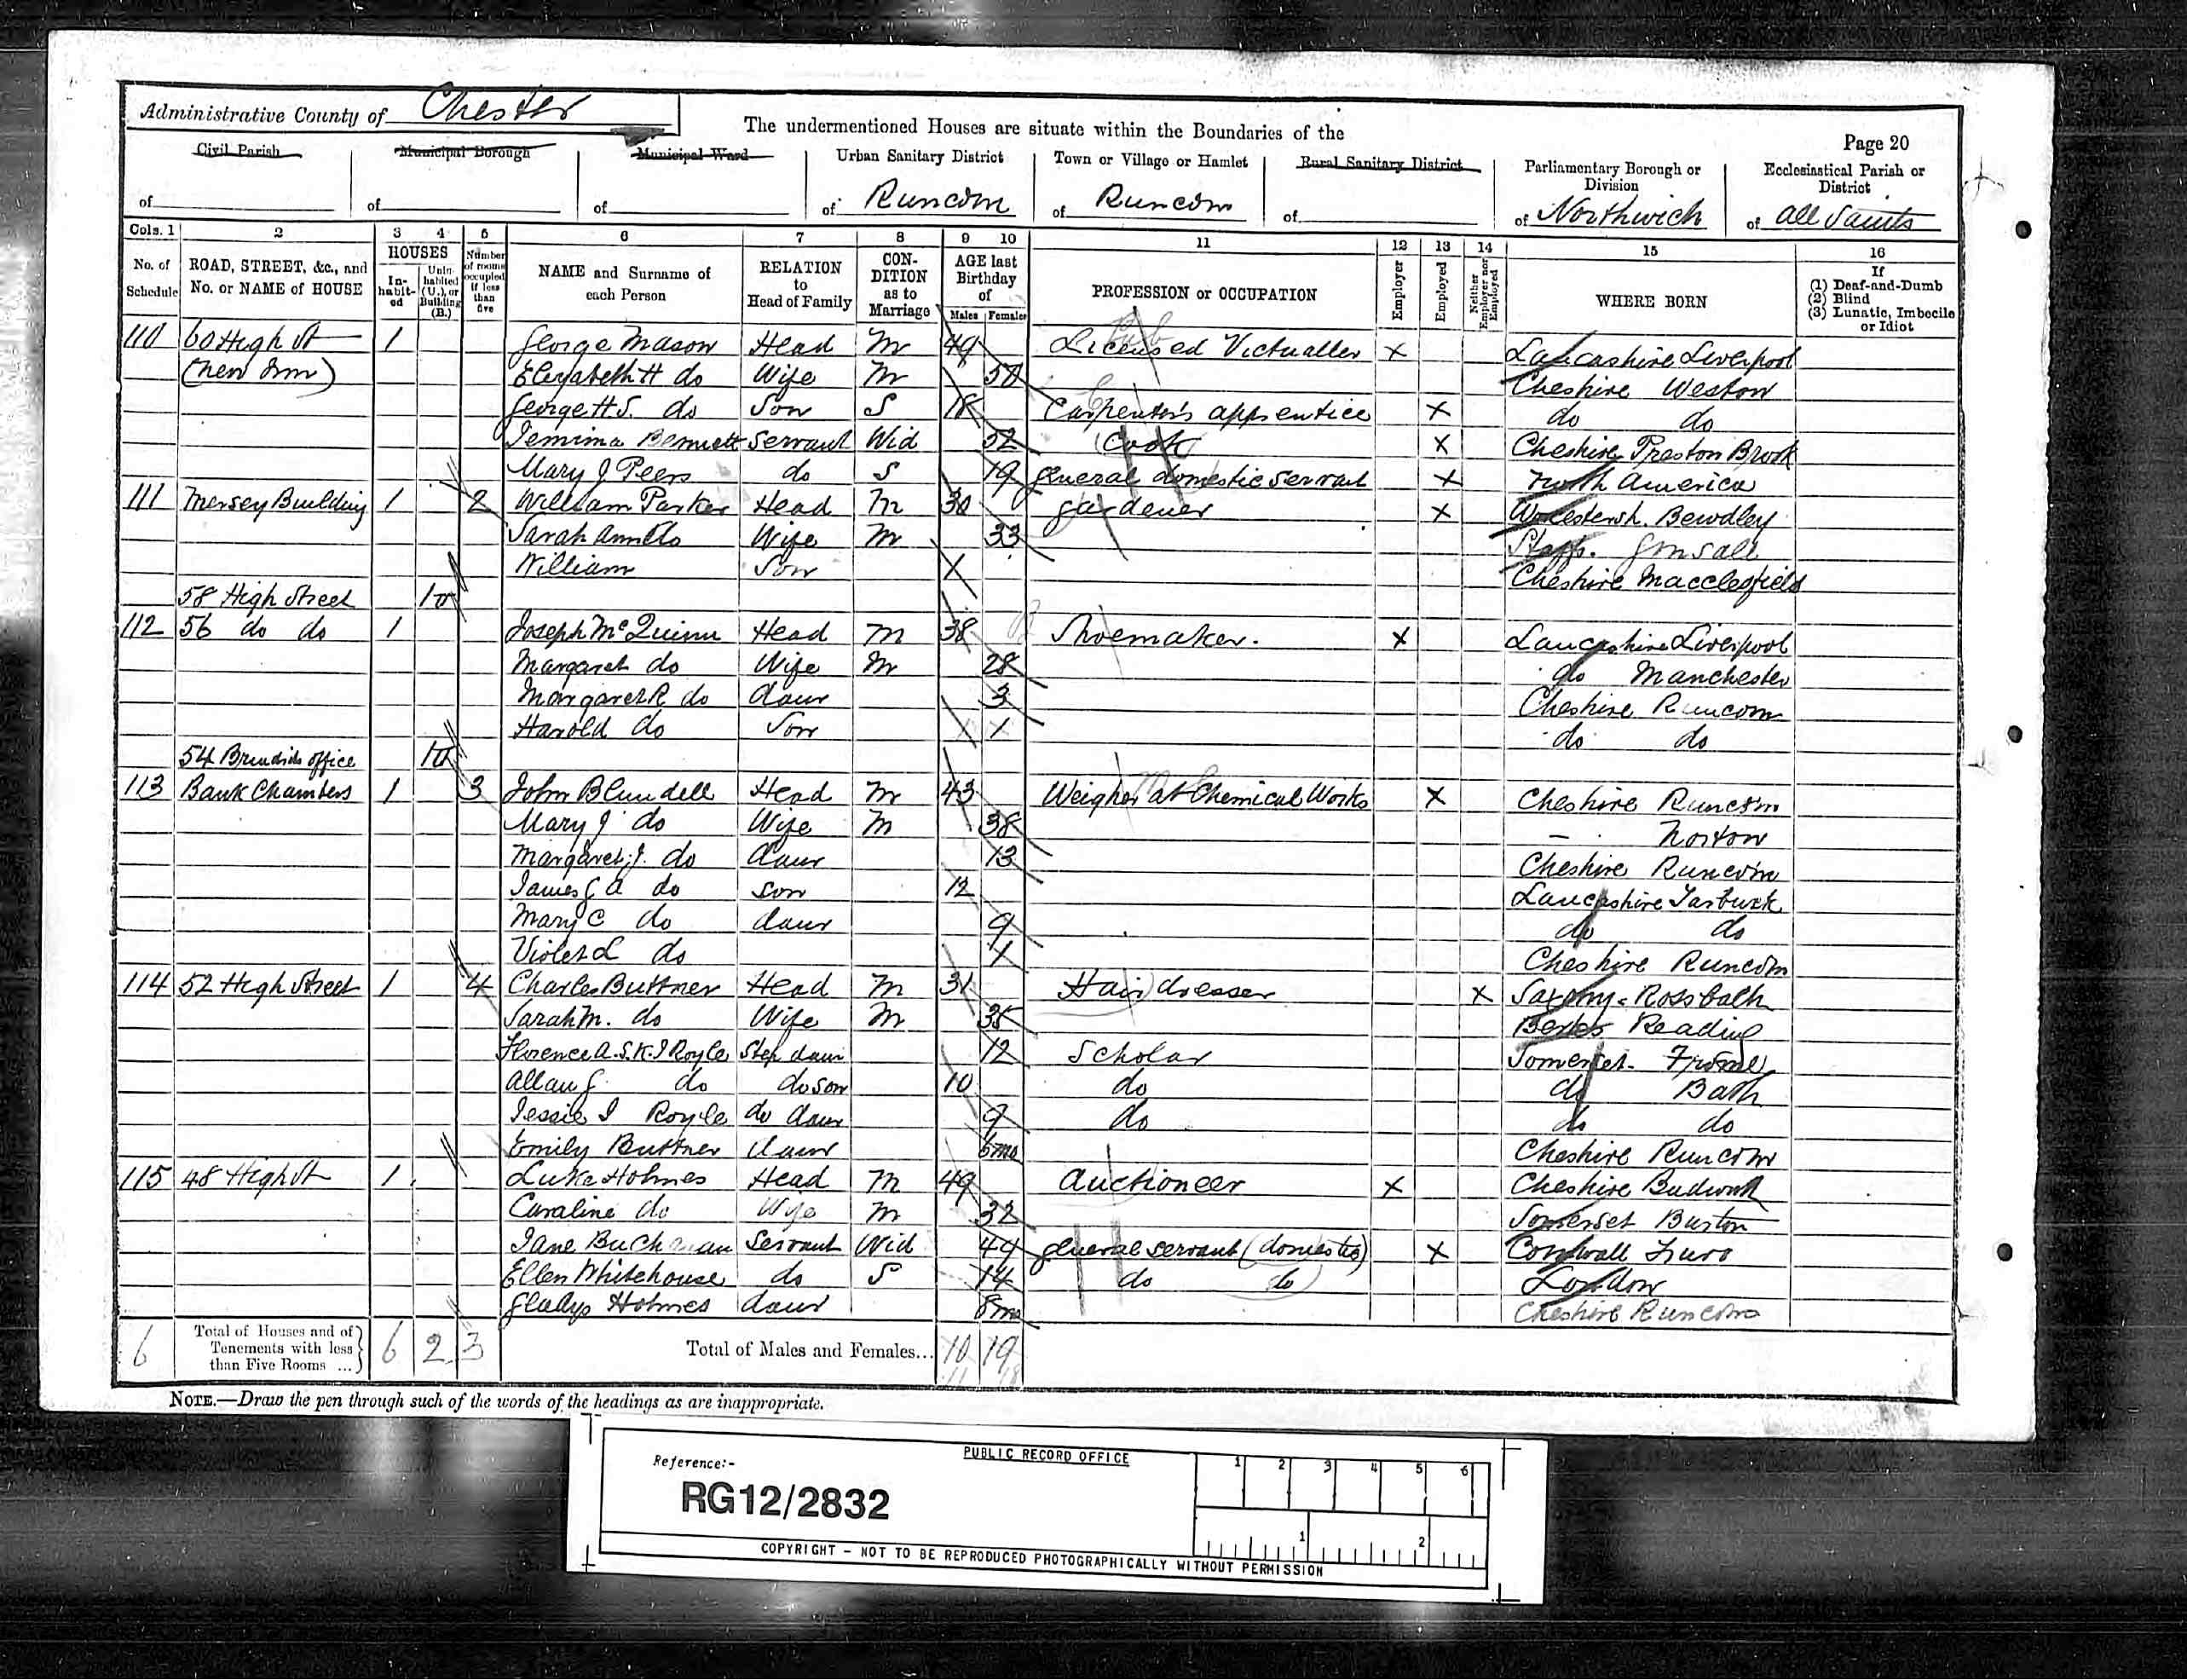 Administrative County of Chester
The undermentioned Houses are situate within the Boundaries of the
Page 20
Civil Parish of
Municipal Borough of
Municipal Ward of
Urban Sanitary District of Runcorn
Town or Village or Hamlet of Runcorn
Rural Sanitary District of
Parliamentary Borough or Division of Northwich
Ecclesiastical Parish or District of All Saints
Cols. 1 2 3 4 5 6 7 8 9 10 11 12 13 14 15 16
No. of Schedule
ROAD, STREET, &c., and No. or NAME of HOUSE
HOUSES
In-habit-ed
Unin-habited (U.), or Building (B.)
Number of rooms occupied if less than five
NAME and Surname of each Person
RELATION to Head of Family
CON-DITION as to Marriage
AGE last Birthday of
Males Females
PROFESSION or OCCUPATION
Employer
Employed
Neither Employer nor Employed
WHERE BORN
If
(1) Deaf-and-Dumb
(2) Blind
(3) Lunatic, Imbecile or Idiot
110 60 High St 1 George Mason Head M 49 Licensed Victualler X Lancashire Liverpool
(New Inn) Elizabeth H do Wife M 50 Cheshire Weston
George H S. do Son S 18 Carpenter's apprentice X do do
Jemima Bennett Servant Wid 52 (Cook) X Cheshire Preston Brook
Mary J Peers do S 19 General domestic servant X North America
111 Mersey Building 1 2 William Parker Head M 30 Gardener X Worcestersh. Bewdley
Sarah Ann do Wife M 33 Staffs.
William Son Cheshire Macclesfield
58 High Street 1u
112 56 do do 1 Joseph McQuinn Head M 38 Shoemaker. X Lancashire Liverpool
Margaret do Wife M 28 do Manchester
Margaret R do daur 3 Cheshire Runcorn
Harold do Son 1 do do
54 office 1u
113 Bank Chambers 1 3 John Blundell Head M 43 Weigher at Chemical Works X Cheshire Runcorn
Mary J do Wife M 38 - Norton
Margaret J. do daur 13 Cheshire Runcorn
James G A do son 12 Lancashire Tarbuck
Mary C do daur 9 do do
Violet L do 1 Cheshire Runcorn
114 52 High Street 1 4 Charles Buttner Head M 31 Hair dresser X Saxony - Rossbach
Sarah M. do Wife M 35 Berks Reading
Florence A. S. K. J Royle Step daur 12 Scholar Somerset - Frome
Allan G do do son 10 do do Bath
Jessie I Royle do daur 9 do do do
Emily Buttner daur 6mo Cheshire Runcorn
115 48 High St 1 Luke Holmes Head M 49 Auctioneer X Cheshire Budworth
Caroline do Wife M 32 Somerset Burton
Jane Buchanan Servant Wid 49 General servant (domestic) X Cornwall Truro
Ellen Whitehouse do S 14 do do London
Gladys Holmes daur 8mo Cheshire Runcorn
6 Total of Houses and of Tenements with less than Five Rooms ... 6 2 3 Total of Males and Females... 10 19
11 18
NOTE.—Draw the pen through such of the words of the headings as are inappropriate.
PUBLIC RECORD OFFICE
Reference:-
RG12/2832
1 2 3 4 5 6
1 2
COPYRIGHT - NOT TO BE REPRODUCED PHOTOGRAPHICALLY WITHOUT PERMISSION